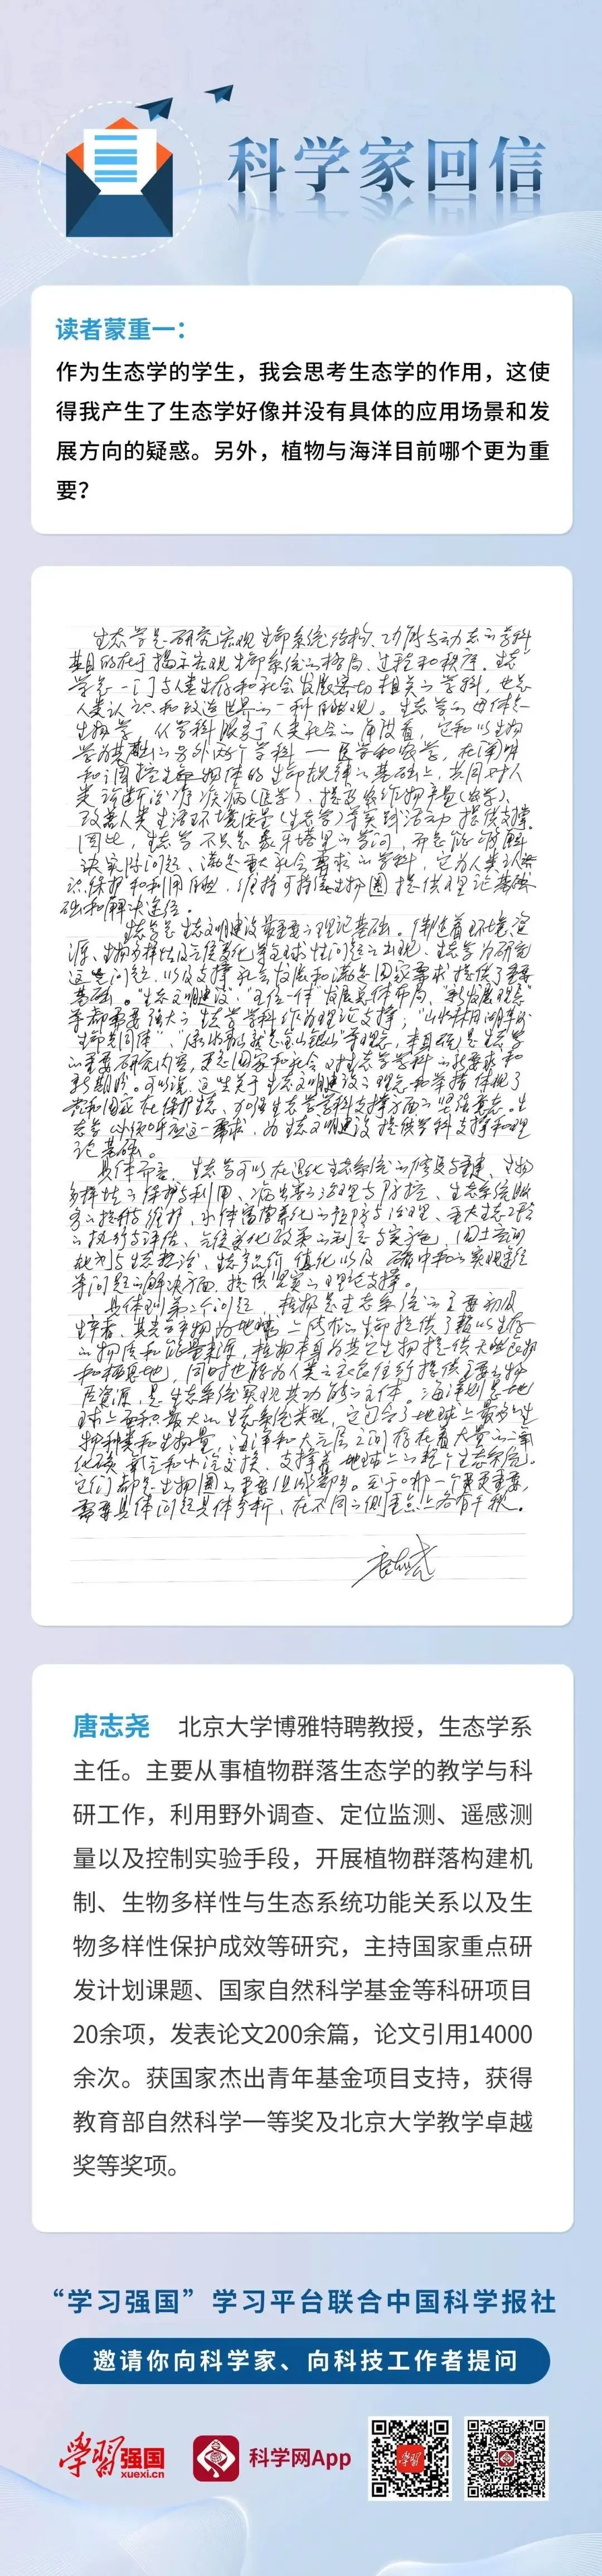 科学家回信
读者蒙重一：
作为生态学的学生，我会思考生态学的作用，这使
得我产生了生态学好像并没有具体的应用场景和发
展方向的疑惑。另外，植物与海洋目前哪个更为重
要？
生态学是研究宏观生命系统结构、功能与动态的学科
其目的在于揭示宏观生命系统的格局、过程和秩序。生态
学是一门与人类生存和社会发展密切相关的学科，也是
人类认识和改造世界的一种自然观。生态学的母体是
生物学，从学科服务于人类社会的角度看，它和以生物
学为基础的另外两个学科——医学和农学，在阐明
和调控生命物体的生命规律的基础上，共同对人
类诊断治疗疾病（医学）、提高农作物产量（农学）、
改善人类生活环境质量（生态学）等实践活动提供支撑。
因此，生态学不只是象牙塔里的学问，而是能够解
决实际问题、满足重大社会需求的学科，它为人类认
识、保护和利用自然，维持可持续生物圈提供理论基
础和解决途径。
生态学是生态文明建设最重要的理论基础。伴随着环境、资
源、生物多样性及气候变化等全球性问题的出现，生态学为研究
这些问题，以及支撑社会发展和满足国家需求提供了重要
基础。“生态文明建设”“五位一体”发展总体布局、“新发展观念”
等都需要强大的生态学学科作为理论支撑；“山水林田湖草沙
生命共同体”、“绿水青山就是金山银山”等理念，本身就是生态学
的重要研究内容，更是国家和社会对生态学学科的新要求和
新期盼。可以说，这些关于生态文明建设的理念和举措体现了
党和国家在保护生态、加强生态学学科支撑方面的坚强意志。生
态学必须呼应这一需求，为生态文明建设提供学科支撑和理
论基础。
具体而言，生态学可以在退化生态系统的修复与重建、生物
多样性的保护与利用、病虫害的治理与防控、生态系统服
务的提升与维护、水体富营养化的预防与治理、重大生态工程
的执行与评估、气候变化政策的制定与实施、国土空间
规划与生态整治、生态产品价值化以及碳中和的实现途径
等问题的解决方面，提供坚实的理论支撑。
具体到第二个问题，植物是生态系统的主要初级
生产者，其光合产物为地球上所有的生命提供了赖以生存
的物质和能量来源，植物本身为其它生物提供天然食物
和栖息地，同时也能为人类的衣食住行提供主要的物
质资源，是生态系统实现其功能的主体。海洋则是地
球上面积最大的生态系统类型，它包含了地球上最多的生
物种类和生物量，海洋和大气层之间存在着大量的二氧
化碳、氧气和水汽交换，支撑着地球上的整个生态系统。
它们都是生物圈的重要组成部分。至于哪一个更重要，
需要具体问题具体分析，在不同的侧重点上各有千秋。
唐志尧
唐志尧 北京大学博雅特聘教授，生态学系
主任。主要从事植物群落生态学的教学与科
研工作，利用野外调查、定位监测、遥感测
量以及控制实验手段，开展植物群落构建机
制、生物多样性与生态系统功能关系以及生
物多样性保护成效等研究，主持国家重点研
发计划课题、国家自然科学基金等科研项目
20余项，发表论文200余篇，论文引用14000
余次。获国家杰出青年基金项目支持，获得
教育部自然科学一等奖及北京大学教学卓越
奖等奖项。
“学习强国”学习平台联合中国科学报社
邀请你向科学家、向科技工作者提问
学习强国
xuexi.cn
科学网App
学习